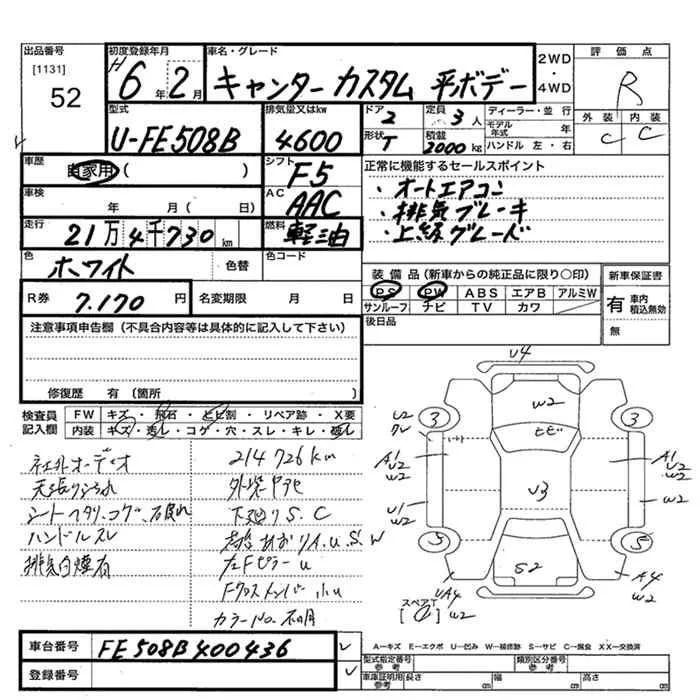 出品番号
[1131]
52
初度登録年月
H6年2月
車名・グレード
キャンター カスタム 平ボデー
2WD
・
4WD
評価点
R
外装 内装
C C
型式
U-FE508B
排気量又はkw
4600
ドア
2
定員
3人
形状
T
積載
2000kg
ディーラー・並行
モデル年式 年
ハンドル 左・右
車歴
自家用 ( )
シフト
F5
車検
年 月 ( 日)
AC
AAC
正常に機能するセールスポイント
・オートエアコン
・排気ブレーキ
・上級グレード
走行
21万4千730km
燃料
軽油
色
ホワイト
色替
色コード
R券
7.170円
名変期限 月 日
装備品 (新車からの純正品に限り○印)
PS PW ABS エアB アルミW
サンルーフ ナビ TV カワ
後日品
新車保証書
有 車内積込無効
無
注意事項申告欄 (不具合内容等は具体的に記入して下さい)
修復歴 有 (箇所 )
検査員記入欄
FW キズ・飛石・ヒビ割・リペア跡・X要
内装 キズ・汚レ・コゲ・穴・スレ・キレ・破レ
社外オーディオ
天張り
シートヘタリ、コゲ、
ハンドルスレ
排気白煙有
214726km
下廻りS.C
あおりA.U.S.W
左Fピラーu
Fクロスメンバー小u
カラーNo.不明
U4
W2
ヒビ
U3
S2
3
3
U2
A1
U2
W2
U1
W2
A1
U2
W2
W2
5
5
UA4
A4
W2
スペアT
[ ] W2
車台番号
FE508B400436
登録番号
A—キズ E—エクボ U—凹み W—補修跡 S—サビ C—腐食 XX—交換済
型式指定番号 参考
類別区分番号 参考
車庫証明用 参考
長さ cm 幅 cm 高さ cm